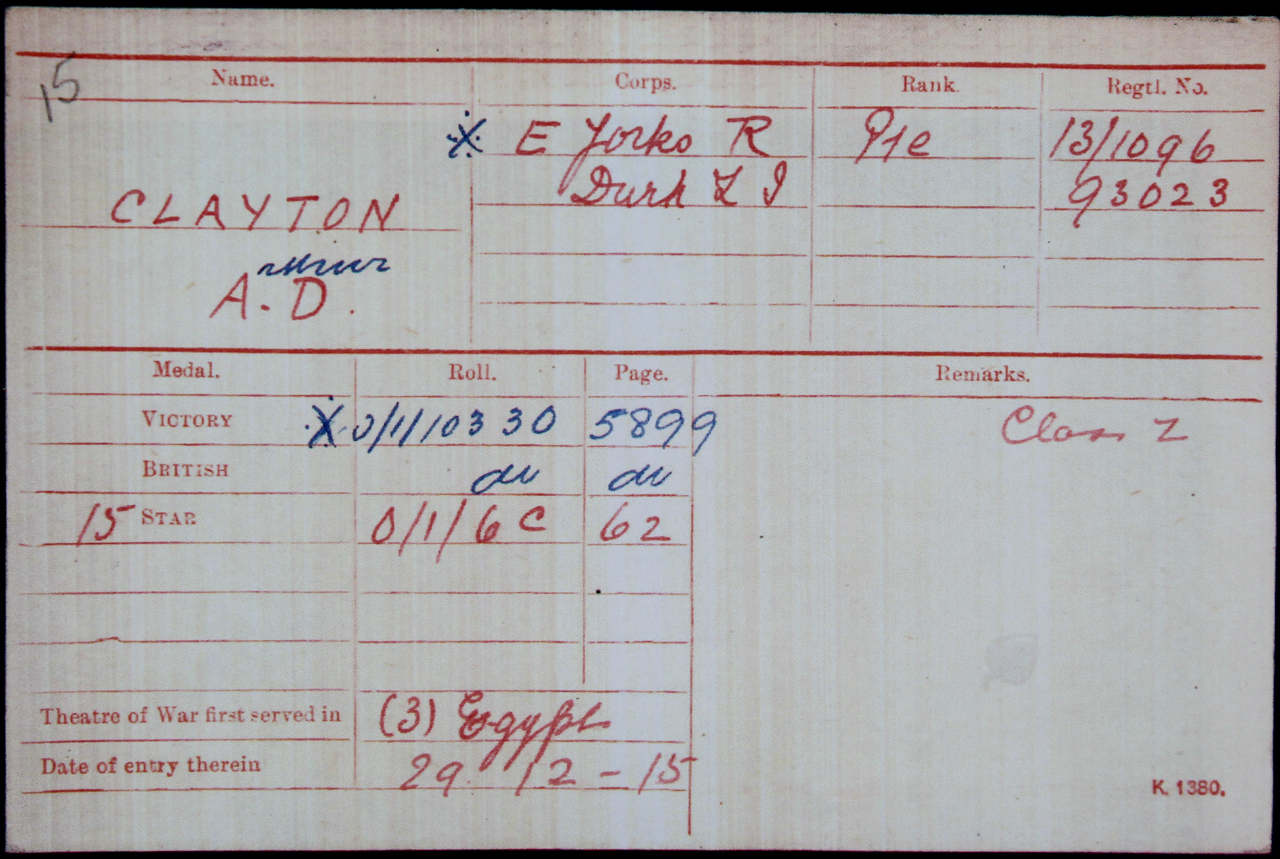 15
Name. Corps. Rank. Regtl. No.
※ E Yorks R Pte 13/1096
CLAYTON Durh L I 93023
A. D.
Medal. Roll. Page. Remarks.
VICTORY ※ O/1/10330 5899 Class Z
BRITISH do do
15 STAR O/1/6 C 62
Theatre of War first served in (3) Egypt
Date of entry therein 29 12 - 15
K. 1380.